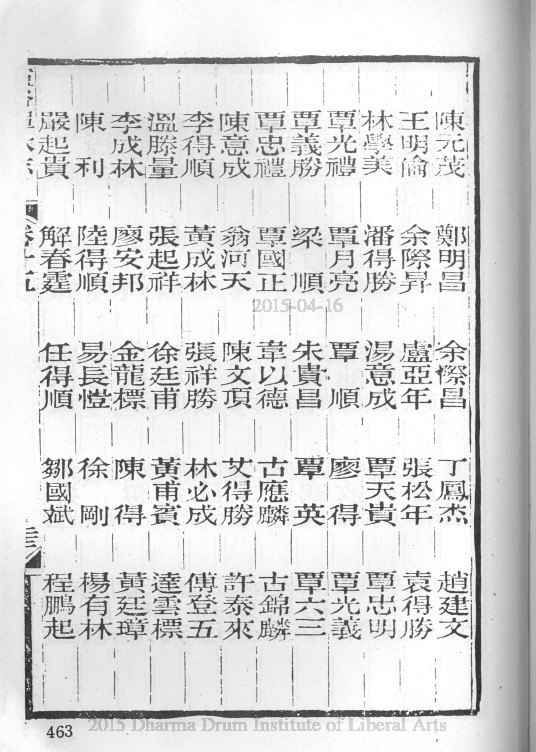 陳元茂 鄭明昌 余際昌 丁鳳杰 趙建文
王明倫 余際昇 盧亞年 張松年 袁得勝
林學美 潘得勝 湯意成 覃天貴 覃忠明
覃光禮 覃月亮 覃 順 廖 得 覃光義
覃義勝 梁 順 朱貴昌 覃 英 覃六三
覃忠禮 覃國正 韋以德 古應麟 古錦麟
陳意成 翁河天 陳文頂 艾得勝 許泰來
李得順 黃成林 張祥勝 林必成 傅登五
溫滕量 張起祥 徐廷甫 黃甫賓 達雲標
李成林 廖安邦 金龍標 陳 得 黃廷璋
陳 利 陸得順 易長愷 徐 剛 楊有林
嚴起貴 解春霆 任得順 鄒國斌 程鵬起
卷十五
2015-04-16
463
2015 Dharma Drum Institute of Liberal Arts